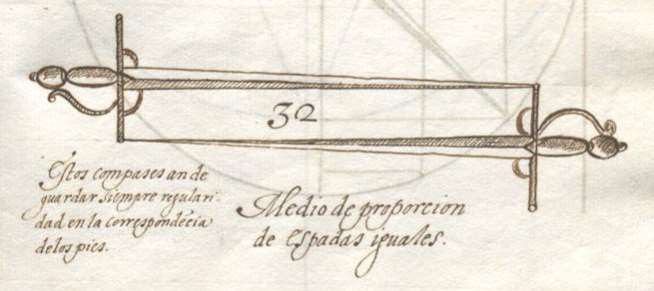 32
Estos compases an de
guardar siempre regulari-
dad en la correspondēcia
de los pies.
Medio de proporcion
de espadas iguales.